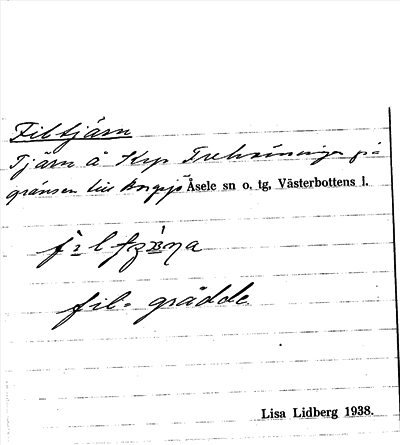 Filtjärn
Tjärn å Krp Trehörningen på
gränsen till Åsele sn o. tg, Västerbottens l.
fil- grädde
Lisa Lidberg 1938.